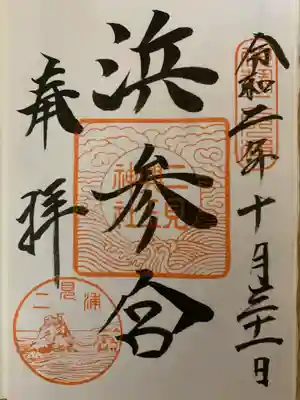 令和二年十月三十一日
浜参宮
二見
興玉
神社
奉拝
二見浦